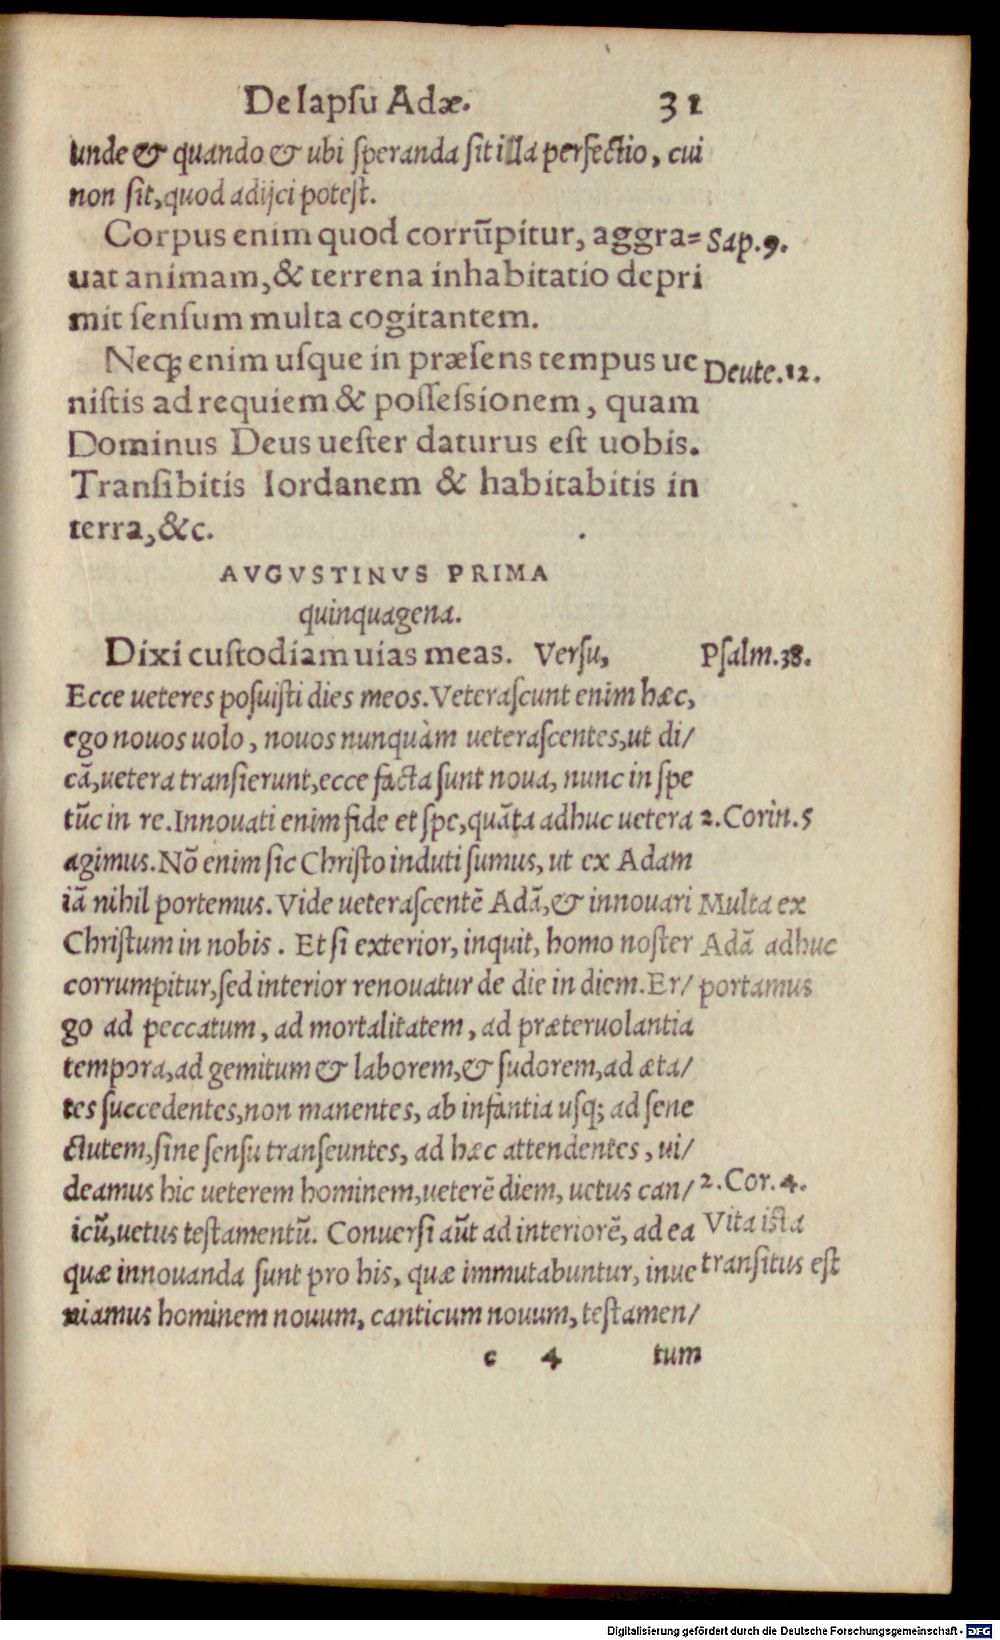 De lapſu Adæ. 31
unde & quando & ubi ſperanda ſit illa perfectio, cui
non ſit, quod adijci poteſt.
Corpus enim quod corrũpitur, aggra= Sap. 9.
uat animam, & terrena inhabitatio depri
mit ſenſum multa cogitantem.
Neq; enim uſque in præſens tempus ue Deute. 12.
niſtis ad requiem & poſſeſsionem, quam
Dominus Deus ueſter daturus eſt uobis.
Tranſibitis Iordanem & habitabitis in
terra, &c.
AVGVSTINVS PRIMA
quinquagena.
Dixi cuſtodiam uias meas. Verſu, Pſalm. 38.
Ecce ueteres poſuiſti dies meos. Veteraſcunt enim hæc,
ego nouos uolo, nouos nunquàm ueteraſcentes, ut di/
cã, uetera tranſierunt, ecce facta ſunt noua, nunc in ſpe
tũc in re. Innouati enim fide et ſpe, quãta adhuc uetera 2. Corin. 5
agimus. Nõ enim ſic Chriſto induti ſumus, ut ex Adam
iã nihil portemus. Vide ueteraſcentẽ Adã, & innouari Multa ex
Chriſtum in nobis. Et ſi exterior, inquit, homo noſter Adã adhuc
corrumpitur, ſed interior renouatur de die in diem. Er/ portamus
go ad peccatum, ad mortalitatem, ad præteruolantia
tempora, ad gemitum & laborem, & ſudorem, ad æta/
tes ſuccedentes, non manentes, ab infantia uſq; ad ſene
ctutem, ſine ſenſu tranſeuntes, ad hæc attendentes, ui/
deamus hic ueterem hominem, ueterẽ diem, uetus can/ 2. Cor. 4.
icũ, uetus teſtamentũ. Conuerſi aũt ad interiorẽ, ad ea Vita iſta
quæ innouanda ſunt pro his, quæ immutabuntur, inue tranſitus eſt
niamus hominem nouum, canticum nouum, teſtamen/
c 4 tum
Digitalisierung gefördert durch die Deutsche Forschungsgemeinschaft - DFG